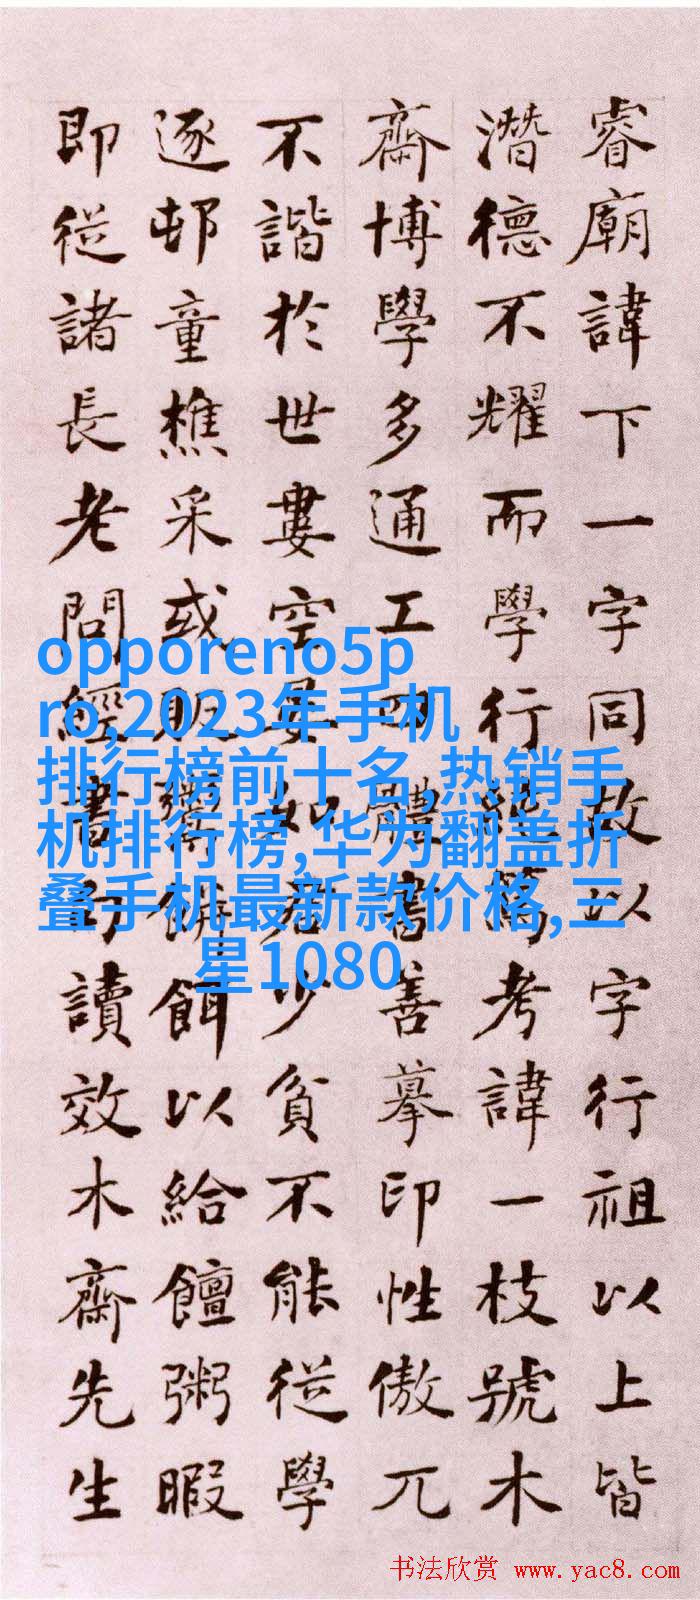 睿廟諱下一字同故以字行祖以上皆
潛德不耀而學行篤考諱一枝號木
齋博學多通工四體書善摹印性傲兀
不諧於世婁空晏如君少貧不能從學
逐邨童樵采或販鬻餅餌以給饘粥暇
即從諸長老問經書句讀效木齋先生
opporeno5p
ro,2023年手机
排行榜前十名,热销手
机排行榜,华为翻盖折
叠手机最新款价格,三
星1080
书法欣赏 www.yac8.com